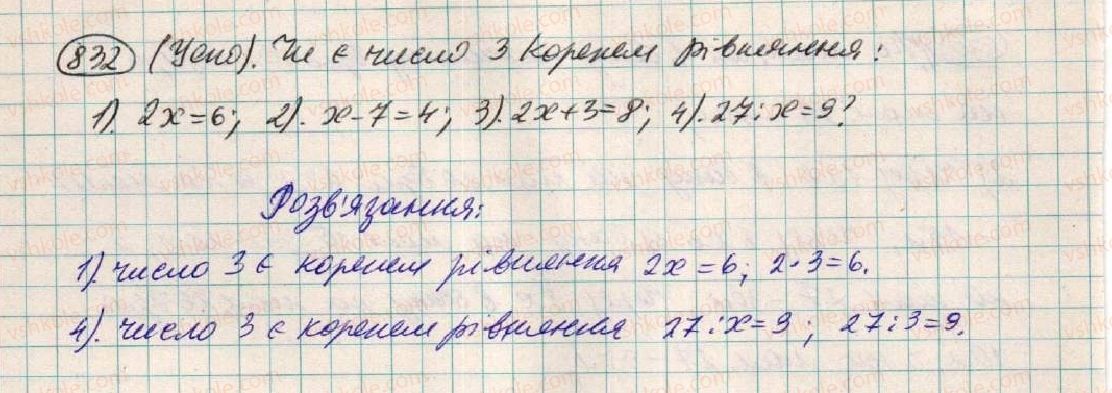 832 (Усно). Чи є число 3 коренем рівняння:
1). 2х=6; 2). х-7=4; 3). 2х+3=8; 4). 27:х=9?
Розв'язання:
1). число 3 є коренем рівняння 2х=6; 2·3=6.
4). число 3 є коренем рівняння 27:х=9; 27:3=9.